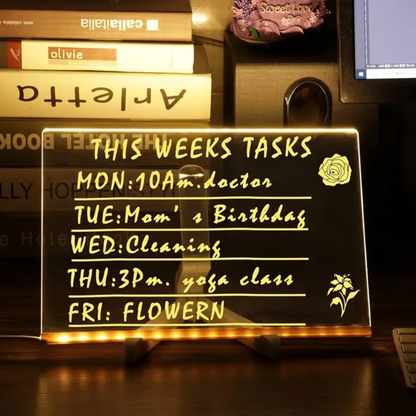 callaitalia
olivia
Arletta
THE HOTEL BOOK
THIS WEEKS TASKS
MON:10Am.doctor
TUE:Mom's Birthday
WED:Cleaning
THU:3Pm. yoga class
FRI: FLOWERN